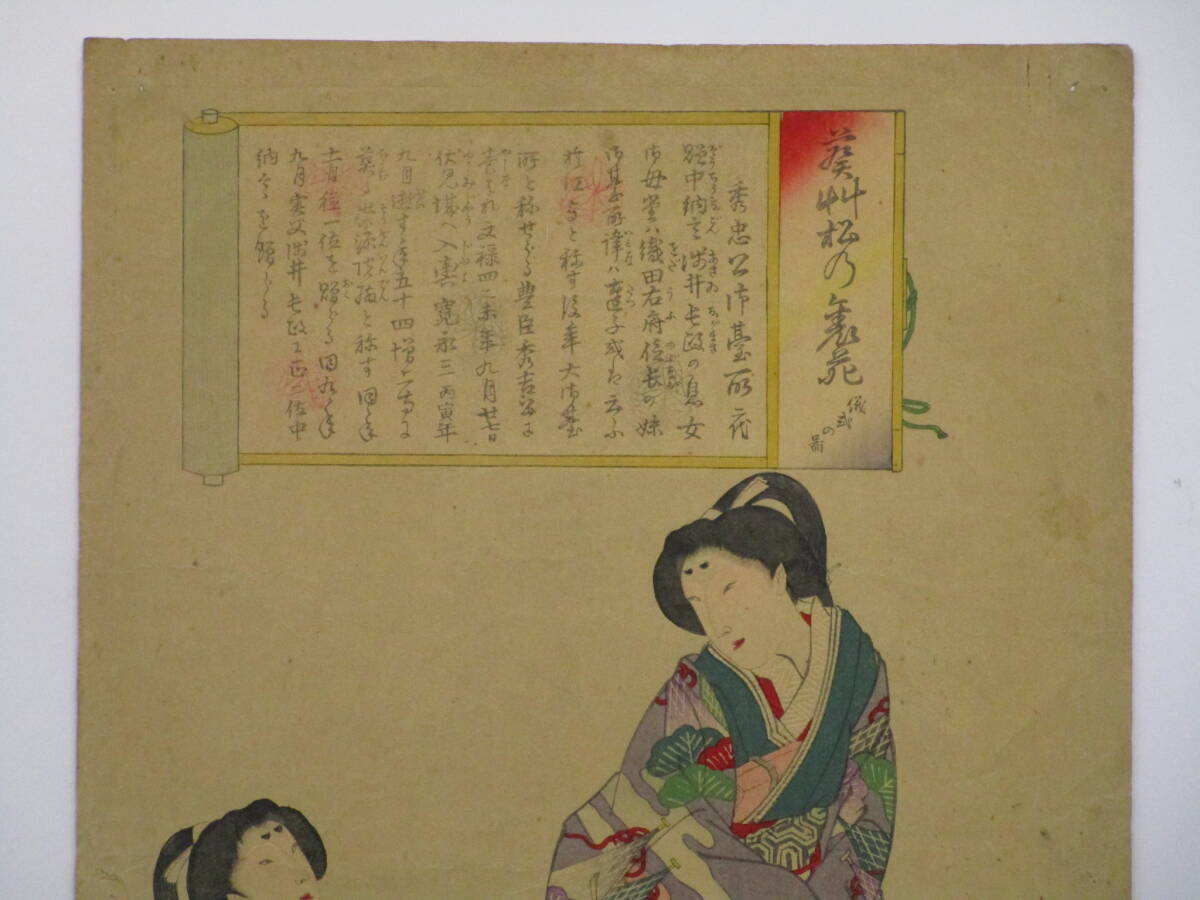 葵艸松の裏苑
儀式の図
秀忠公御台所
贈中納言浅井長政の息女
御母堂ハ織田右府信長の妹
御台所諱ハ達子或は云ふ
於江与と称す後年大御台
所と称せらる豊臣秀吉公に
養はれ文禄四乙未年九月廿七日
伏見城へ入輿寛永三丙寅年
九月逝す年五十四増上寺に
葬る崇源院殿と称す同年
十一月従一位を贈らる同九年
九月実父浅井長政に正二位中
納言を贈らる